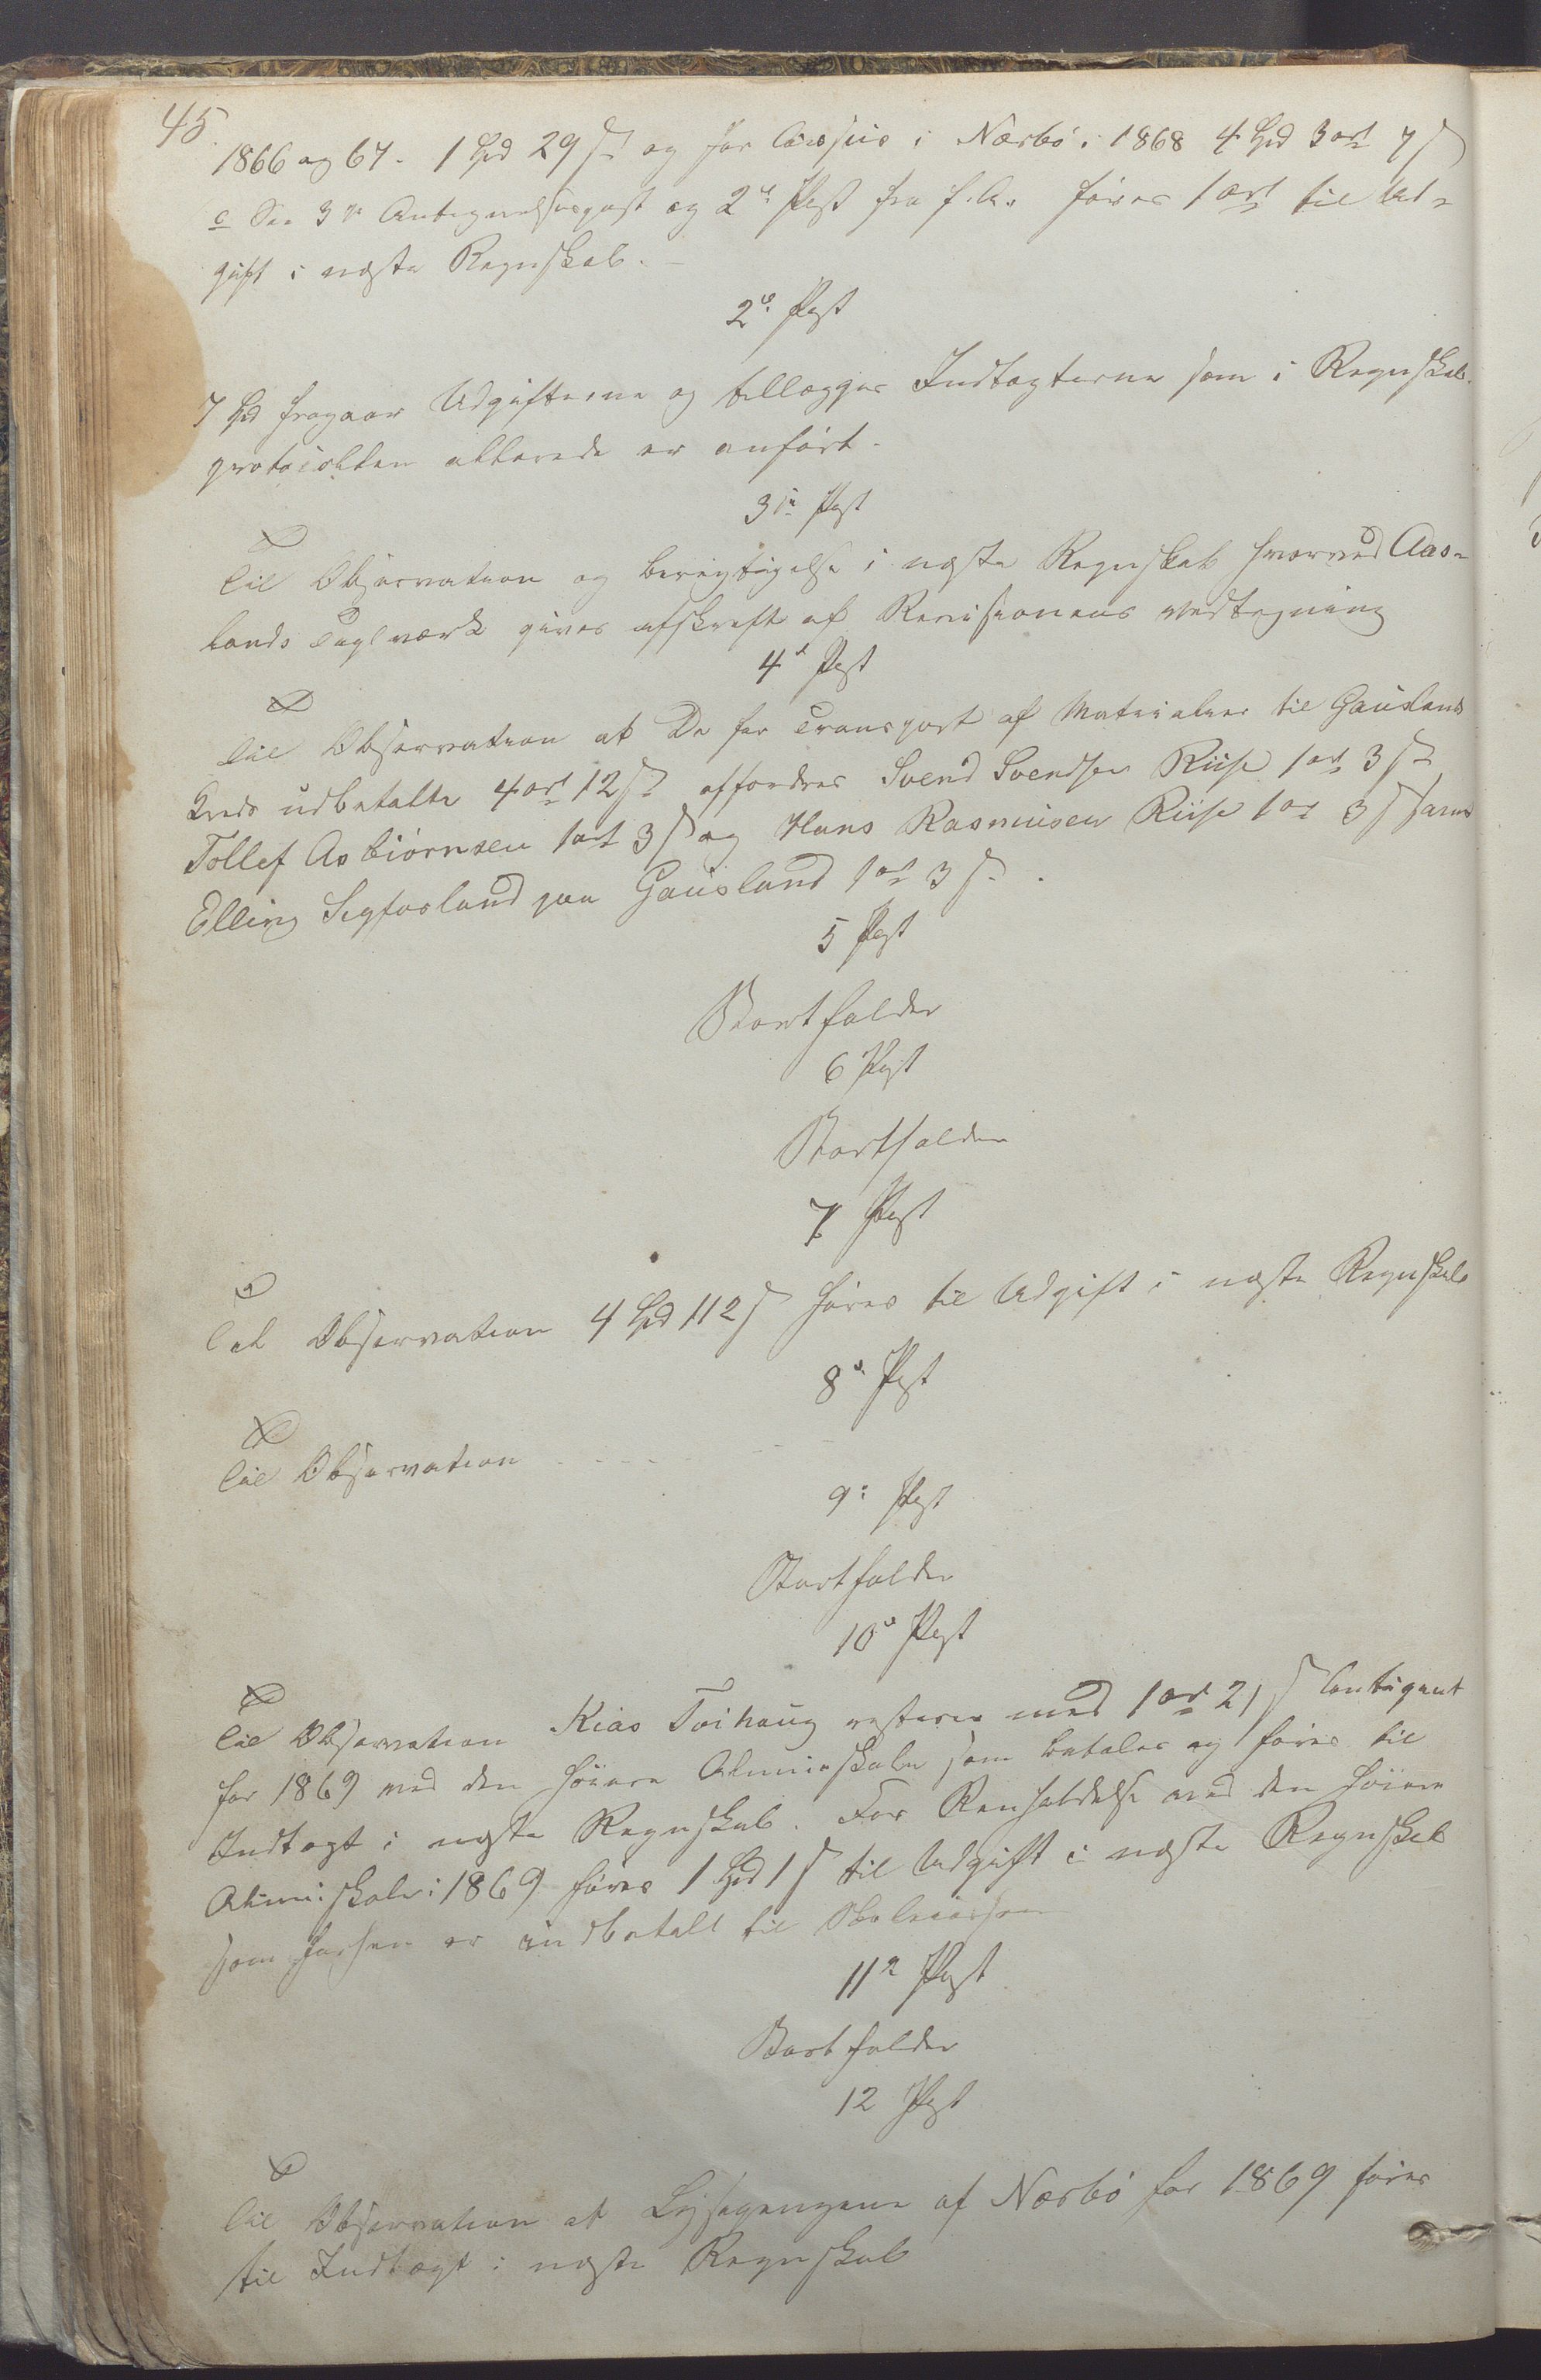 45.
1866 og 67. 1 Spd 29 s og for i Nærbö i 1868 4 Spd 3 ort 7 s
c See 3die Antegnelsespost og 2den Post fra f.A. föres 1 ort til Ud-
gift i næste Regnskab.
2den Post
7 Spd fragaar Udgifterne og tillægges Indtægterne som i Regnskabs-
protocollen allerede er anfört.
3die Post
Til Observation og berigtigelse i næste Regnskab hvorved Aas-
lands Teglværk gives afskrift af Revisionens Vedtegning
4de Post
Til Observation at De for Transport af Materialier til Gausland
Kreds udbetalte 4 ort 12 s affordres Svend Svendsen Riise 1 ort 3 s
Tollef Asbiörnsen 1 ort 3 s og Hans Rasmusen Riise 1 ort 3 s samt
Elling Sigfasland paa Gausland 1 ort 3 s.
5 Post
Bortfalder
6 Post
Bortfalder
7 Post
Til Observation 4 Spd 112 s föres til Udgift i næste Regnskab
8de Post
Til Observation
9de Post
Bortfalder
10de Post
Til Observation Kias Toihaug resterer med 1 ort 21 s Contigent
for 1869 ved den höiere Almueskole som betales og föres til
Indtægt i næste Regnskab. For Renholdelse ved den höiere
Almueskole i 1869 föres 1 Spd 1 s til Udgift i næste Regnskab
som er indbetalt til Skolecassen
11te Post
Bortfalder
12 Post
Til Observation at af Nærbö for 1869 föres
til Indtægt i næste Regnskab